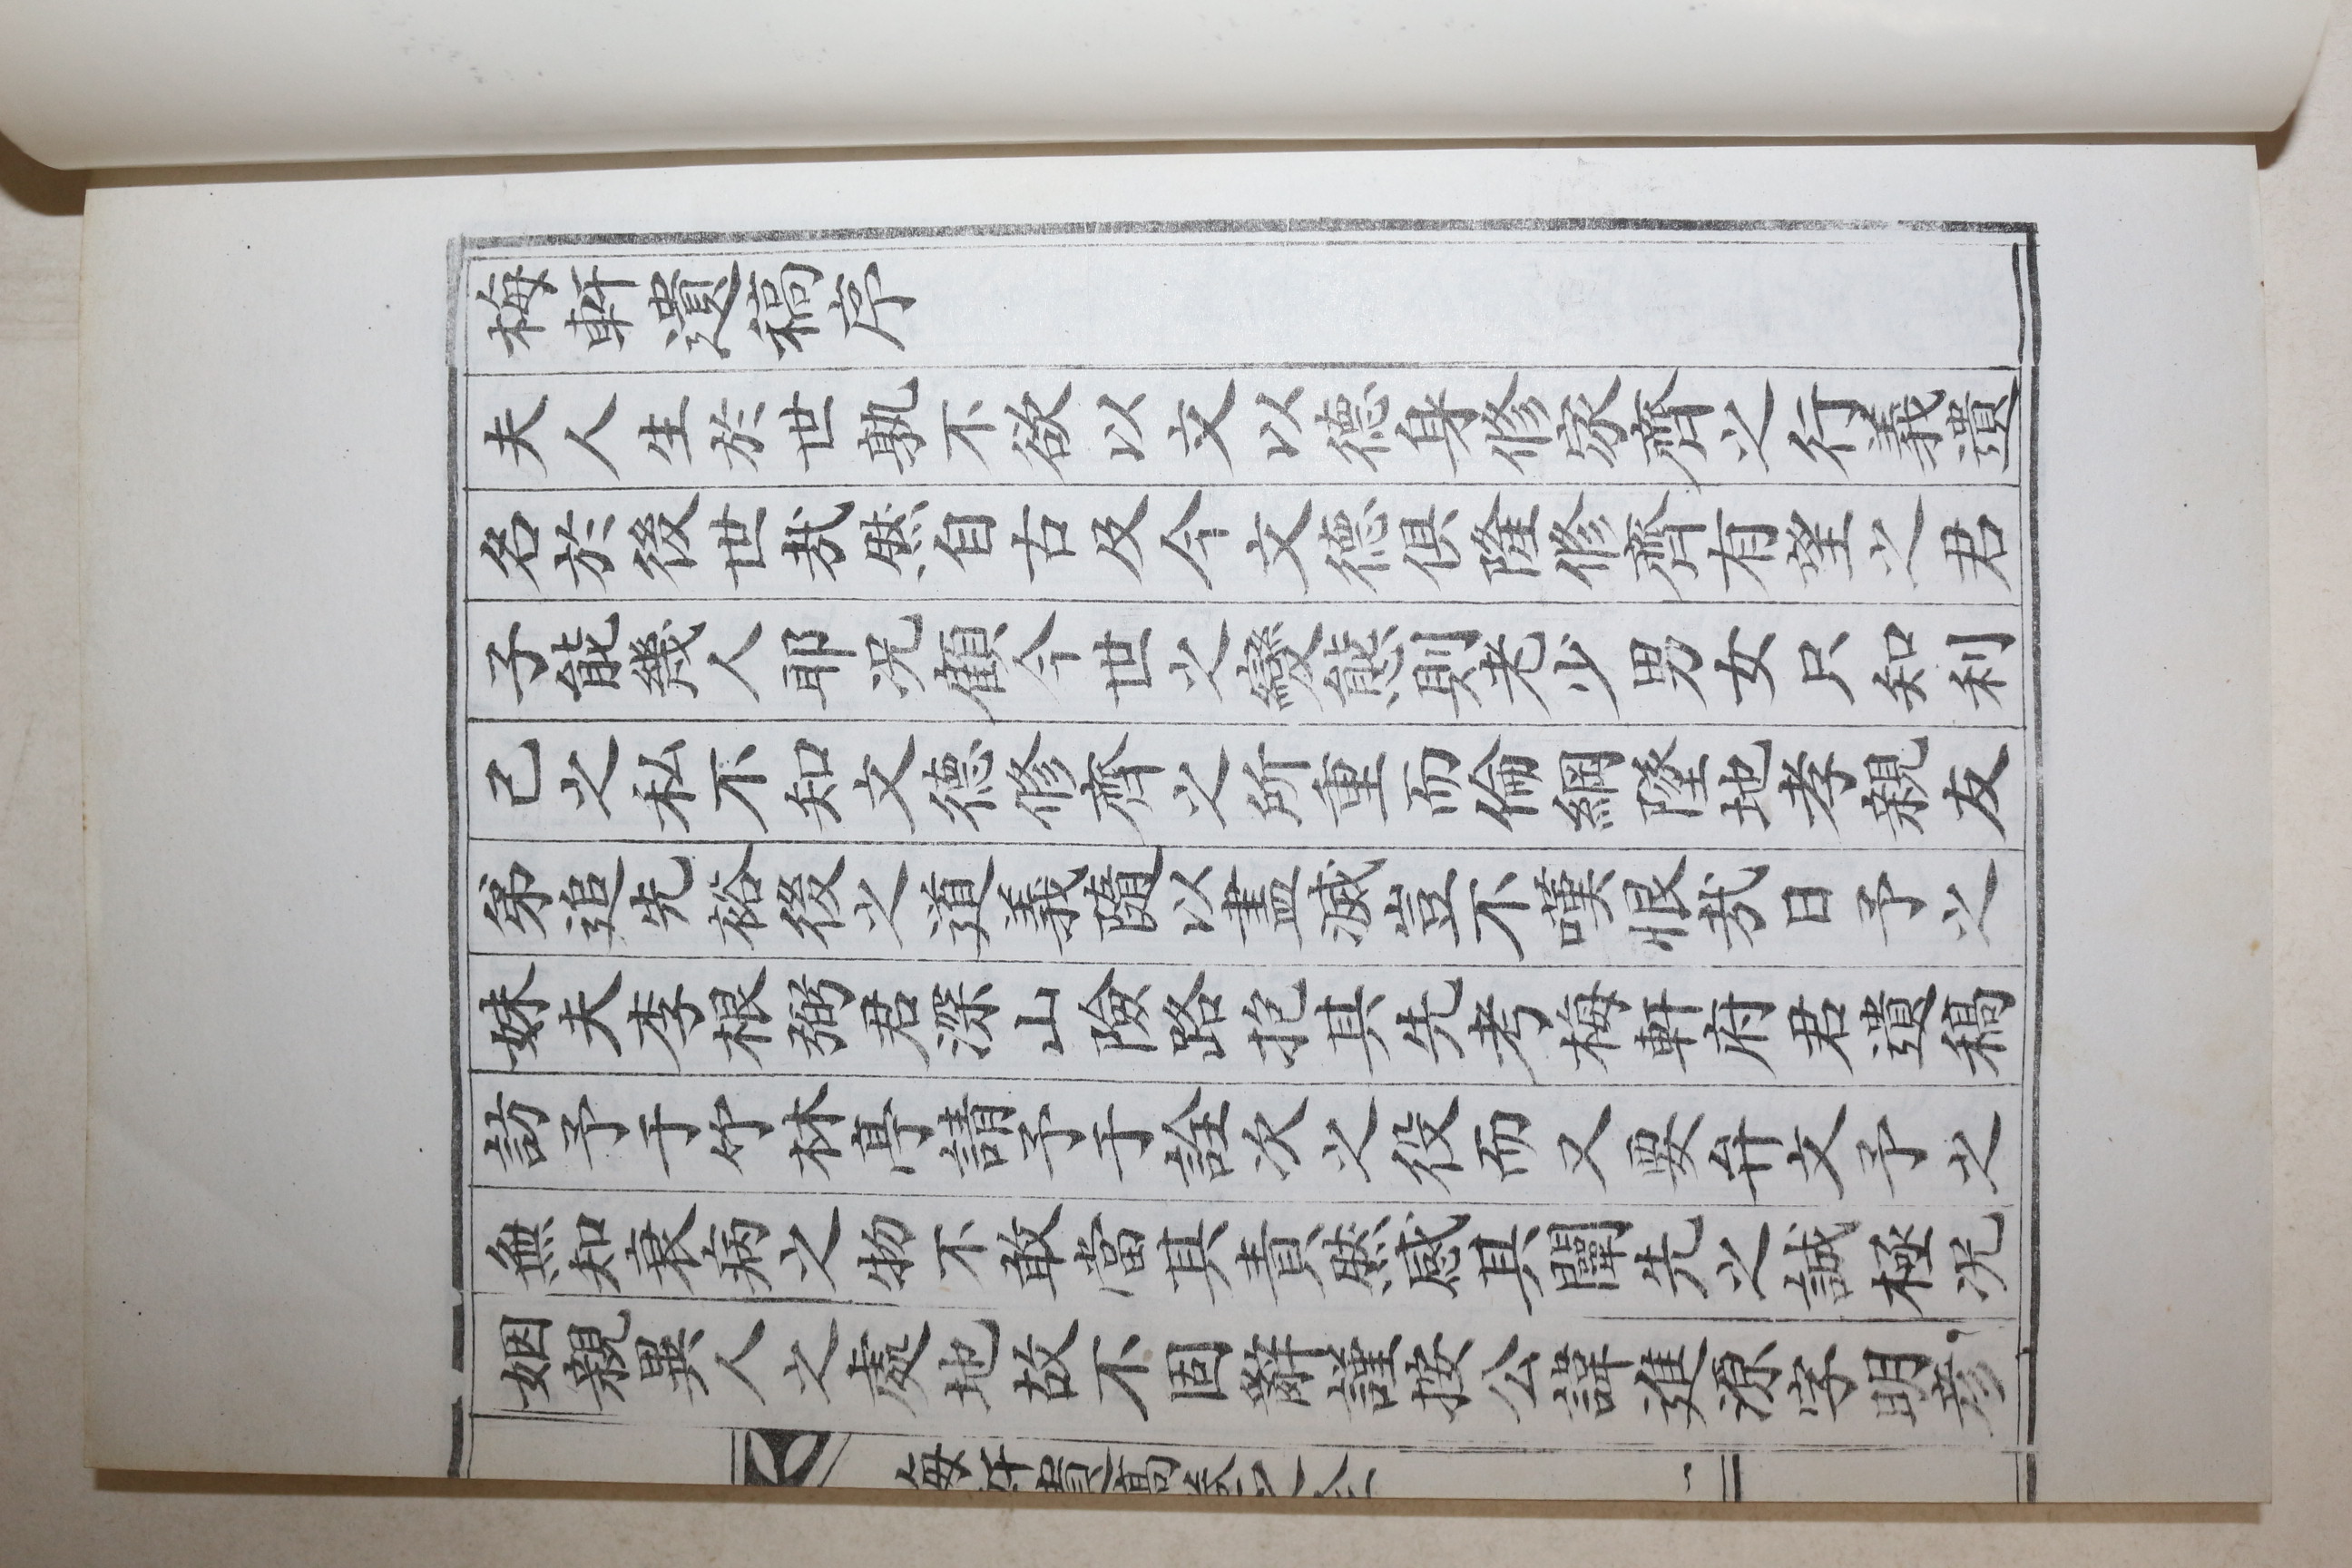 梅軒遺稿序
夫人生於世孰不欲以文以德身修家齊之行義遺
名於後世哉然自古及今文德俱隆修齊有望之君
子能幾人耶況顧今世之變態則老少男女只知利
己之私不知文德修齊之所重而倫綱墜地孝親友
弟追先裕後之道義隨以盡滅豈不嘆恨哉日予之
妹夫李根弼君深山險路抱其先考梅軒府君遺稿
訪予于竹林亭請予于詮次之役而又要弁文予之
無知衰病之物不敢當其責然感其闡先之誠極況
姻親異人之處地故不固辭謹按公諱進源字明彦
梅軒遺稿卷之全
一